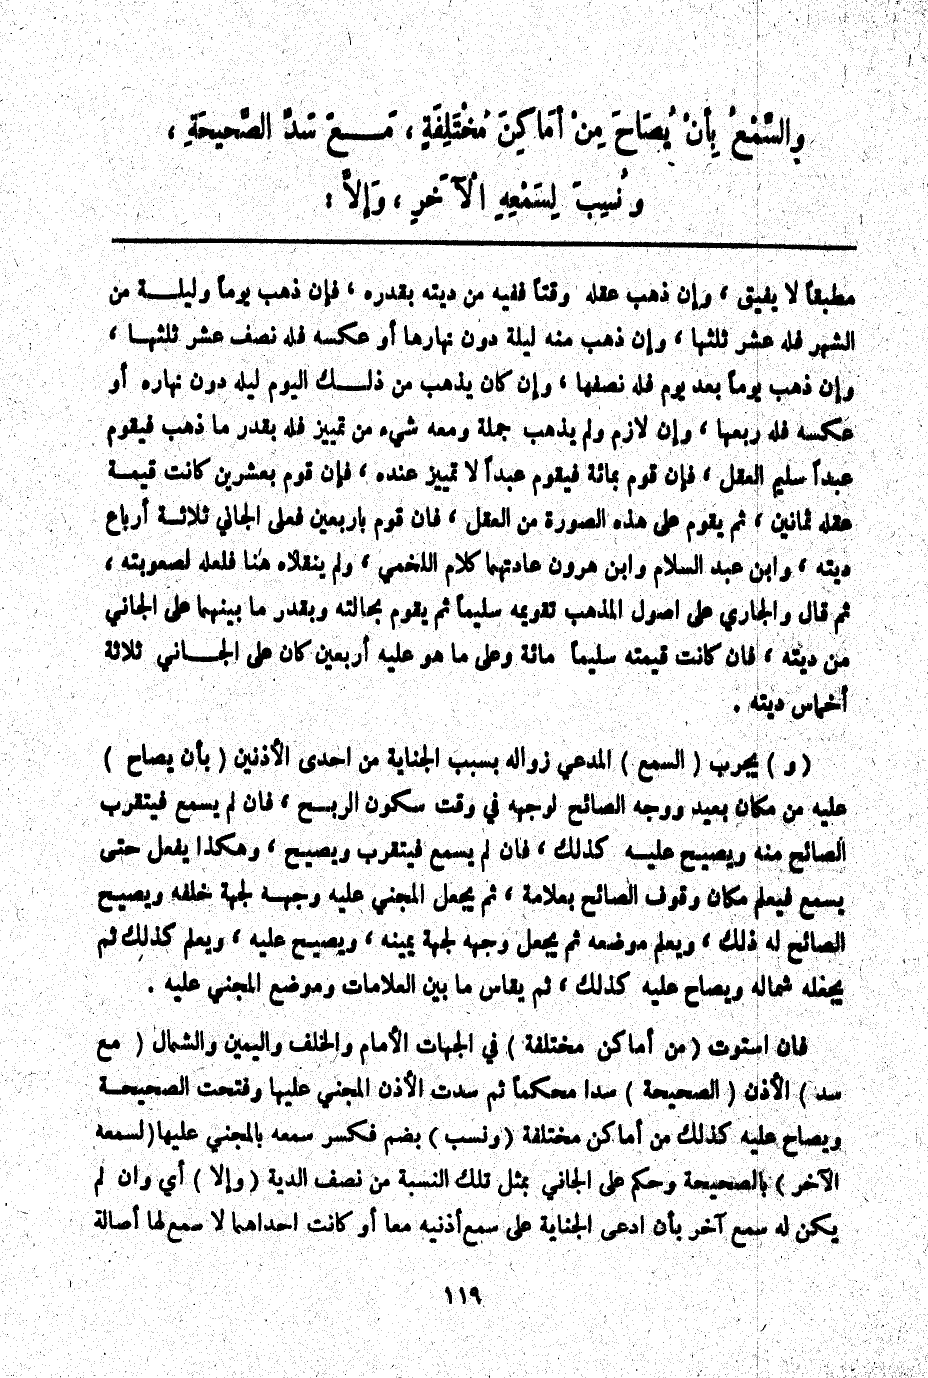 والسَّمْعُ بِأَنْ يُصَاحَ مِنْ أَمَاكِنَ مُخْتَلِفَةٍ ، مَـــعَ سَدِّ الصَّحِيحَةِ ،
وَنُسِبَ لِسَمْعِهِ الْآخَرِ ، وَإِلاَّ :
مطبقاً لا يفيق ، وإن ذهب عقله وقتاً ففيه من ديته بقدره ، فإن ذهب يوماً وليلـــة من
الشهر فله عشر ثلثها ، وإن ذهب منه ليلة دون نهارها أو عكسه فله نصف عشر ثلثهـا ،
وإن ذهب يوماً بعد يوم فله نصفها ، وإن كان يذهب من ذلـــك اليوم ليله دون نهاره أو
عكسه فله ربعها ، وإن لازم ولم يذهب جملة ومعه شيء من تمييز فله بقدر ما ذهب فيقوم
عبداً سليم العقل ، فإن قوم بمائة فيقوم عبداً لا تمييز عنده ، فإن قوم بعشرين كانت قيمـة
عقله ثمانين ، ثم يقوم على هذه الصورة من العقل ، فان قوم باربعين فعلى الجاني ثلاثـة أرباع
ديته ، وابن عبد السلام وابن هرون عادتهما كلام اللخمي ، ولم ينقلاه هنا فلعله لصعوبته ،
ثم قال والجاري على اصول المذهب تقويمه سليماً ثم يقوم بحالته وبقدر ما بينهما على الجاني
من ديته ، فان كانت قيمته سليماً مائة وعلى ما هو عليه أربعين كان على الجـــاني ثلاثة
أخماس ديته .
( و ) يجرب ( السمع ) المدعي زواله بسبب الجناية من احدى الأذنين ( بأن يصاح )
عليه من مكان بعيد ووجه الصائح لوجهه في وقت سكون الريـح ، فان لم يسمع فيتقرب
الصائح منه ويصيح عليـه كذلك ، فان لم يسمع فيتقرب ويصيـح ، وهكذا يفعل حتى
يسمع فيعلم مكان وقوف الصائح بعلامة ، ثم يجعل المجني عليه وجهـه لجهة خلفه ويصيـح
الصائح له ذلك ، ويعلم موضعه ثم يجعل وجهه لجهة يمينه ، ويصيـح عليه ، ويعلم كذلك ثم
يجعله شماله ويصاح عليه كذلك ، ثم يقاس ما بين العلامات وموضع المجني عليه .
فان استوت ( من أماكن مختلفة ) في الجهات الأمام والخلف واليمين والشمال ( مع
سد ) الأذن ( الصحيحة ) سدا محكماً ثم سدت الأذن المجني عليها وفتحت الصحيحـة
ويصاح عليه كذلك من أماكن مختلفة ( ونسب ) بضم فكسر سمعه بالمجني عليها (لسمعه
الآخر ) بالصحيحة وحكم على الجاني بمثل تلك النسبة من نصف الدية ( وإلا ) أي وان لم
يكن له سمع آخر بأن ادعى الجناية على سمع أذنيه معا أو كانت احداهما لا سمع لها أصالة
١١٩